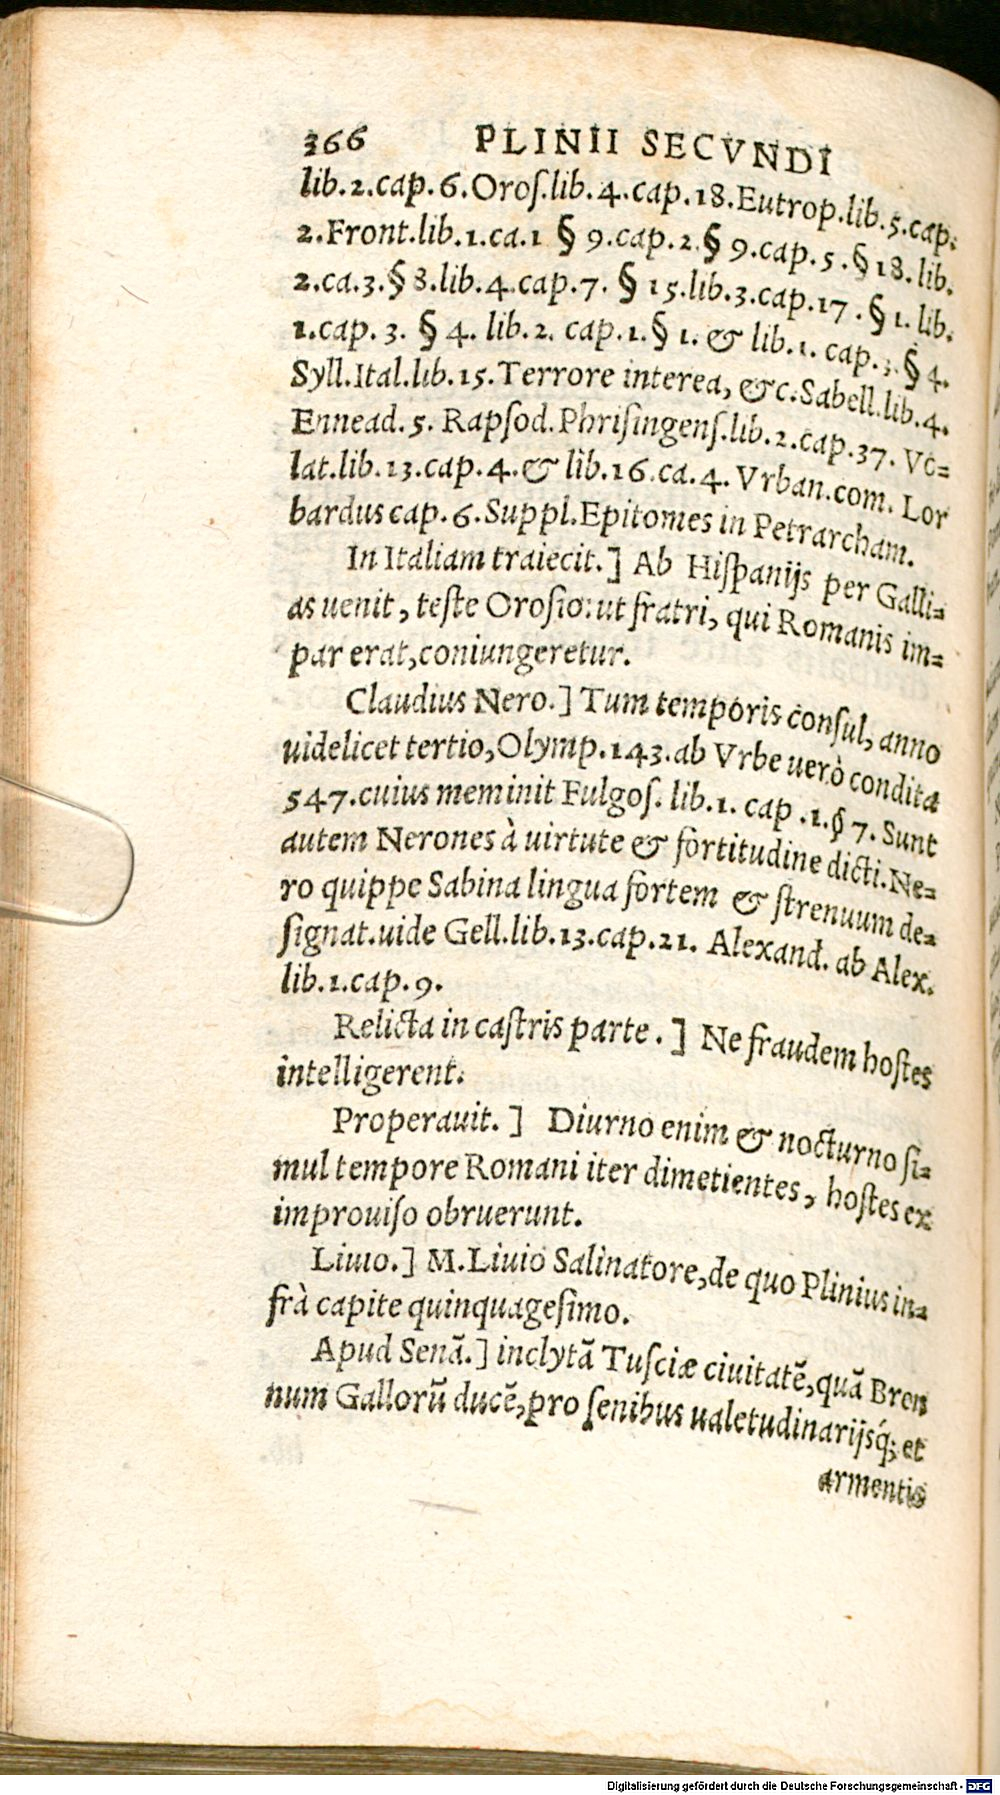 366 PLINII SECVNDI
lib.2.cap.6.Oroſ.lib.4.cap.18.Eutrop.lib.5.cap.
2.Front.lib.1.ca.1 § 9.cap.2.§ 9.cap.5.§ 18.lib.
2.ca.3.§ 8.lib.4.cap.7. § 15.lib.3.cap.17.§ 1. lib.
1.cap. 3. § 4. lib.2. cap.1.§ 1. & lib.1. cap.3.§ 4.
Syll.Ital.lib.15.Terrore interea, &c.Sabell.lib.4.
Ennead.5. Rapſod.Phriſingenſ.lib.2.cap.37. Vo=
lat.lib.13.cap.4.& lib.16.ca.4. Vrban.com. Lor
bardus cap.6.Suppl.Epitomes in Petrarcham.
In Italiam traiecit.] Ab Hiſpanijs per Galli=
as uenit, teſte Oroſio: ut fratri, qui Romanis im=
par erat,coniungeretur.
Claudius Nero.] Tum temporis conſul, anno
uidelicet tertio,Olymp.143.ab Vrbe uerò condita
547.cuius meminit Fulgoſ. lib.1. cap .1.§ 7. Sunt
autem Nerones à uirtute & fortitudine dicti.Ne=
ro quippe Sabina lingua fortem & ſtrenuum de=
ſignat.uide Gell.lib.13.cap.21. Alexand. ab Alex.
lib.1.cap.9.
Relicta in caſtris parte.] Ne fraudem hoſtes
intelligerent.
Properauit.] Diurno enim & nocturno ſi=
mul tempore Romani iter dimetientes, hoſtes ex
improuiſo obruerunt.
Liuio.] M.Liuio Salinatore,de quo Plinius in=
frà capite quinquageſimo.
Apud Senã.] inclytã Tuſciæ ciuitatẽ,quã Bren
num Gallorũ ducẽ,pro ſenibus ualetudinarijsq́; et
armentis
Digitalisierung gefördert durch die Deutsche Forschungsgemeinschaft - DFG